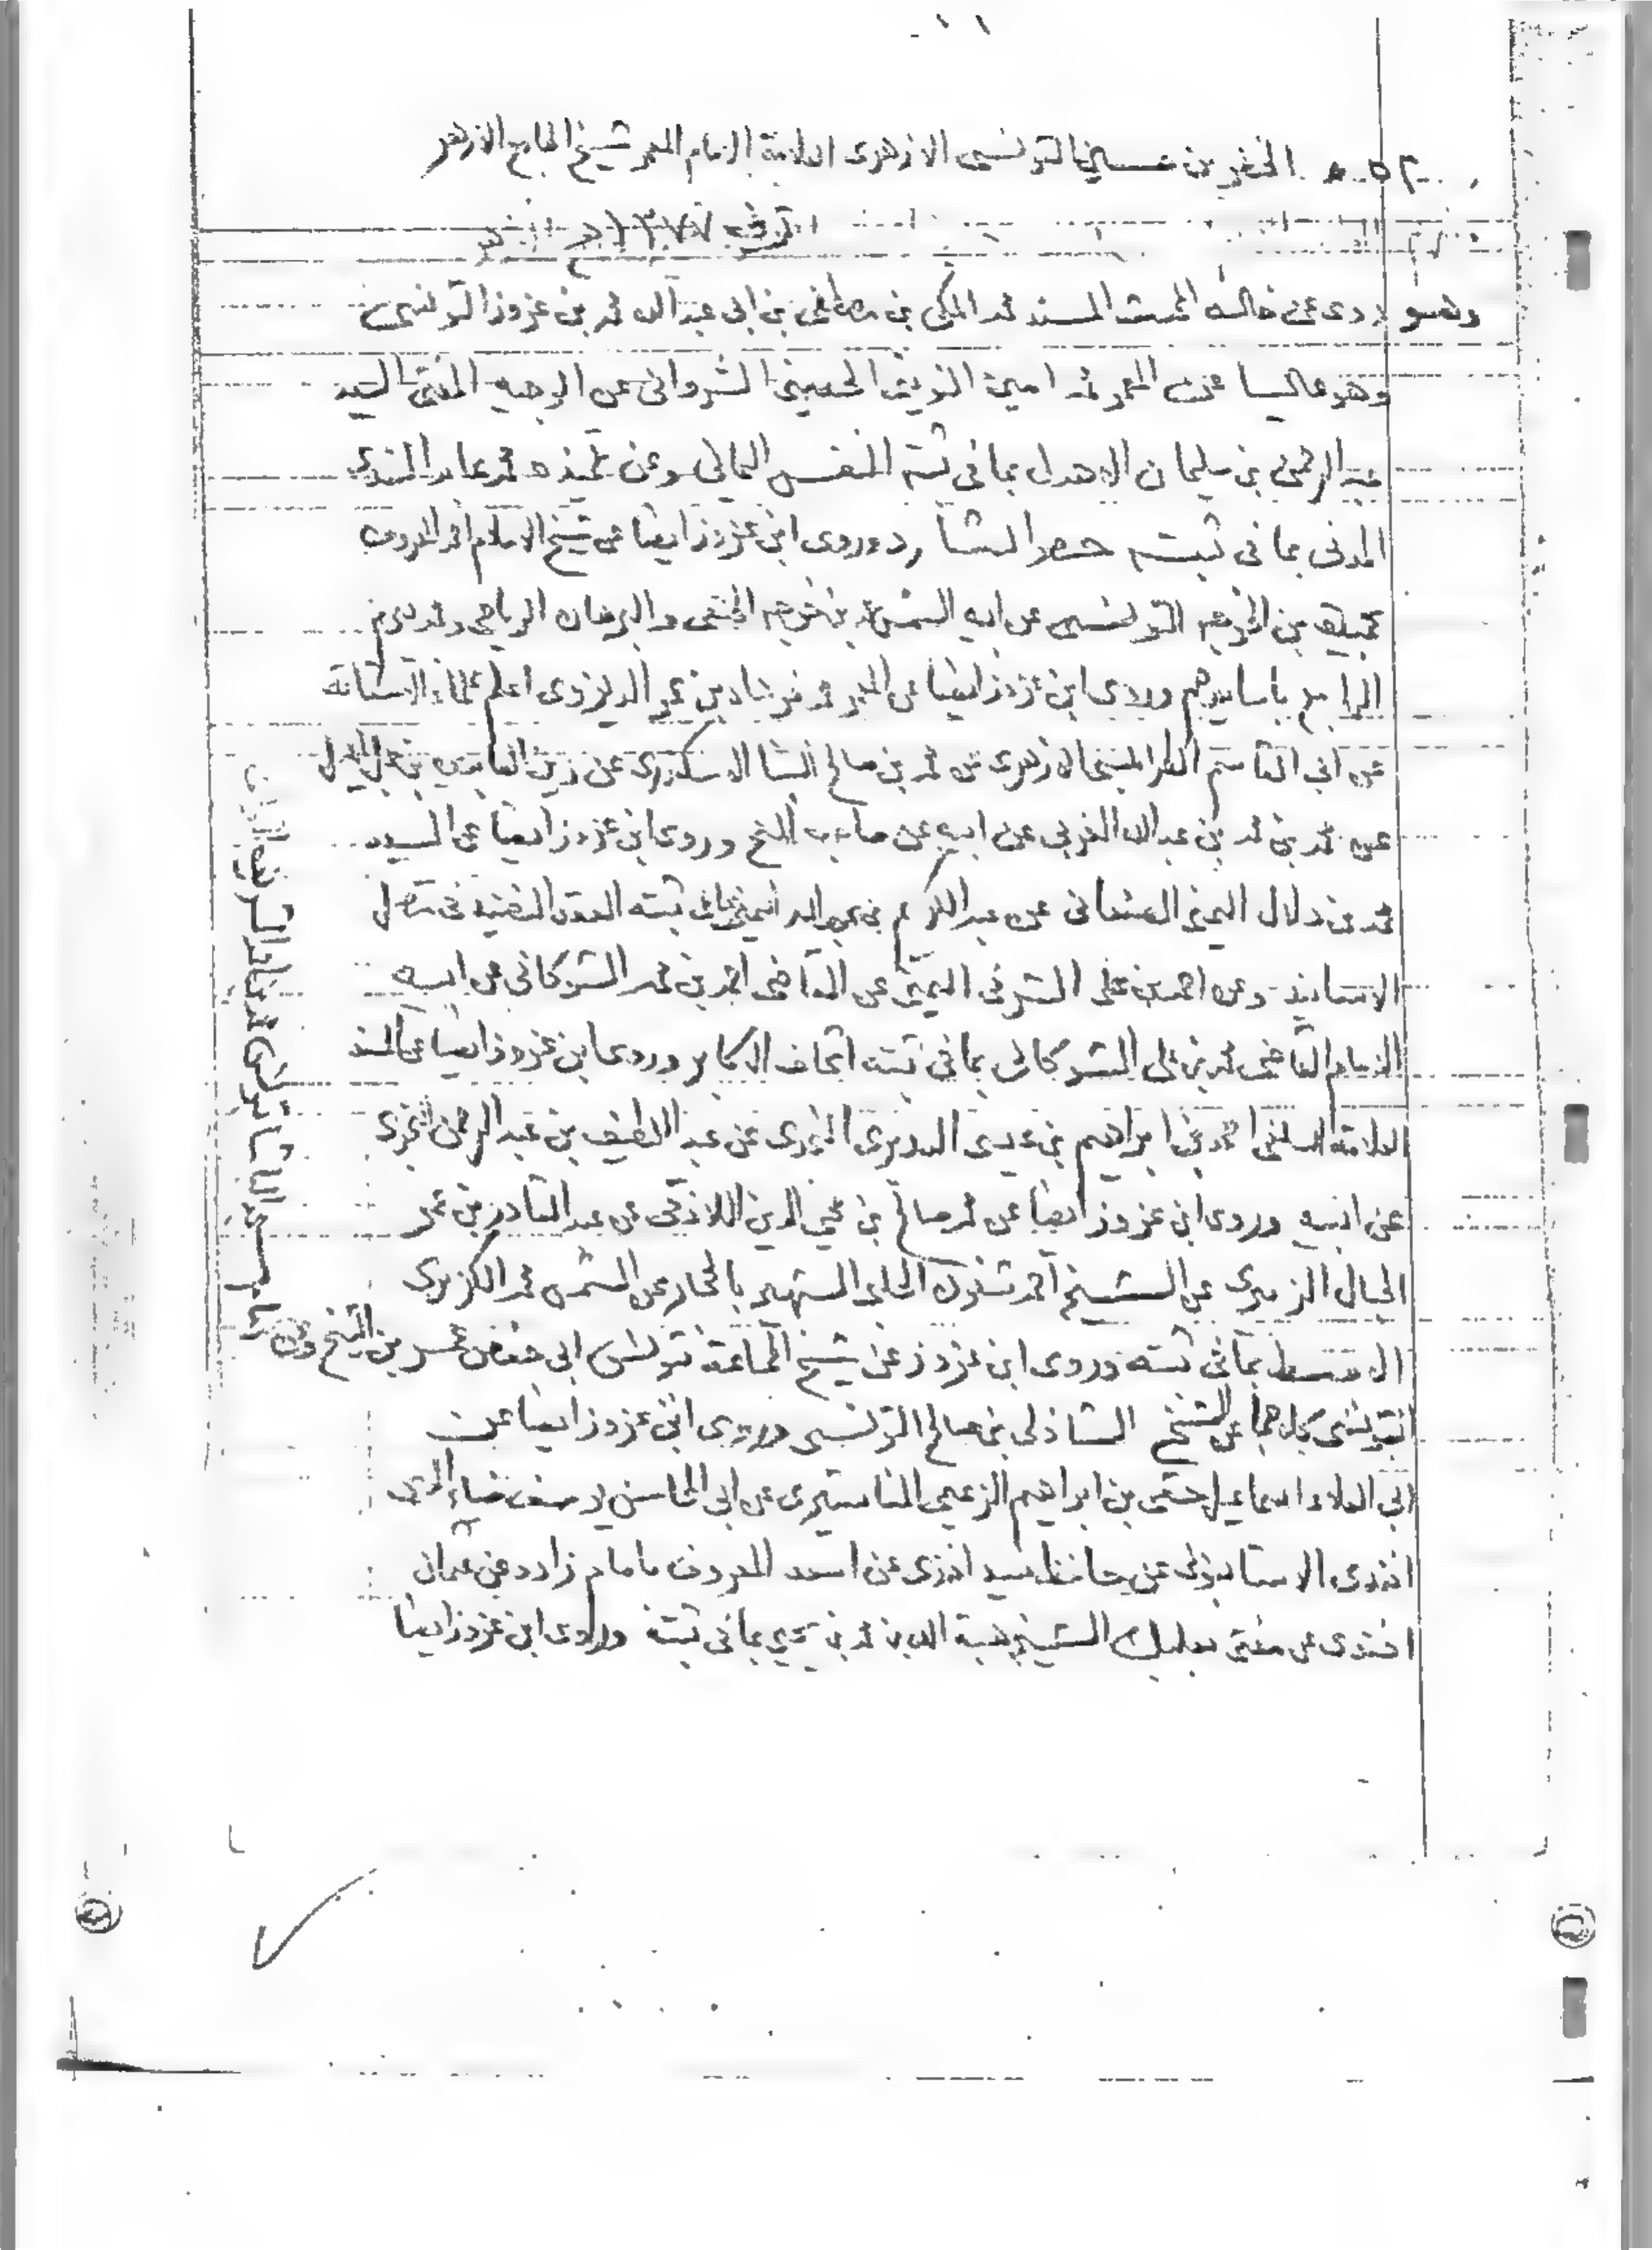 ١١
٥٢ الخضر بن حسين التونسي الازهرى العلامة الامام المعمر شيخ الجامع الازهر
١٣٧٧ه
وهو يروى عن خاله المحدث المسند محمد المكي بن مصطفى بن ابى عبد الله محمد بن عزوز التونسي
وهو عاليا عن المعمر محمد امين الحسيني الشرواني عن الوجيه المفتى السيد
عبد الرحمن بن سليمان الاهدل بما فى ثبته النفس اليمانى وعن تلميذه محمد عابد السندى
المدنى بما فى ثبته حصر الشارد وروى ابن عزوز ايضا عن شيخ الاسلام احمد المعروف
بن الخوجه التونسي عن ابيه الشمس محمد بن خوجه الحنفى والبرهان الرياحى ومحمد بيرم
الرابع باسانيدهم وروى ابن عزوز ايضا عن المعمر محمد فرهاد بن عمر الريزوى اعلم علماء الاستانة
عن ابى القاسم الطرابلسى الازهرى عن محمد بن صالح البنا الاسكندرى عن زين العابدين بن جمل الليل
عن محمد بن محمد بن عبد الله المغربى عن ابيه عن صاحب المنح وروى ابن عزوز ايضا عن السيد
محمد بن دلال اليمنى الصنعانى عن عبد الكريم بن عبد الله ثبته العقد النضيد فى متصل
الاسانيد وعن احمد بن على الشرفى اليمنى عن القاضى احمد بن محمد الشوكانى عن ابيه
الامام القاضى محمد بن على الشوكانى بما فى ثبته اتحاف الاكابر وروى ابن عزوز ايضا عن المسند
العلامة السلفى احمد بن ابراهيم بن عيسى السديرى النجدى عن عبد اللطيف بن عبد الرحمن النجدى
عن ابيه وروى ابن عزوز ايضا عن محمد صالح بن محيي الدين اللاذقى عن عبد القادر بن عمر
الحبال الزبيرى عن الشيخ احمد شنون الحلبى الشهير بالحجار عن الشمس محمد الكزبرى
الاوسط بما فى ثبته وروى ابن عزوز عن شيخ الجماعة بتونس ابى حفص عمر بن الشيخ وعن سالم
التونسى كلاهما عن الشيخ الشاذلى بن صالح التونسى وروى ابن عزوز ايضا عن
ابى العلاء اسماعيل حقى بن ابراهيم الزعيمى المناستيرى عن ابى المحاسن يوسف ضياء الدين
افندى الاستانبولى عن حافظ سيد افندى عن اسعد المعروف بامام زاده عن عثمان
افندى عن مفتى بعلبك الشيخ هبة الله بن محمد بن يحيى بما فى ثبته وروى ابن عزوز ايضا